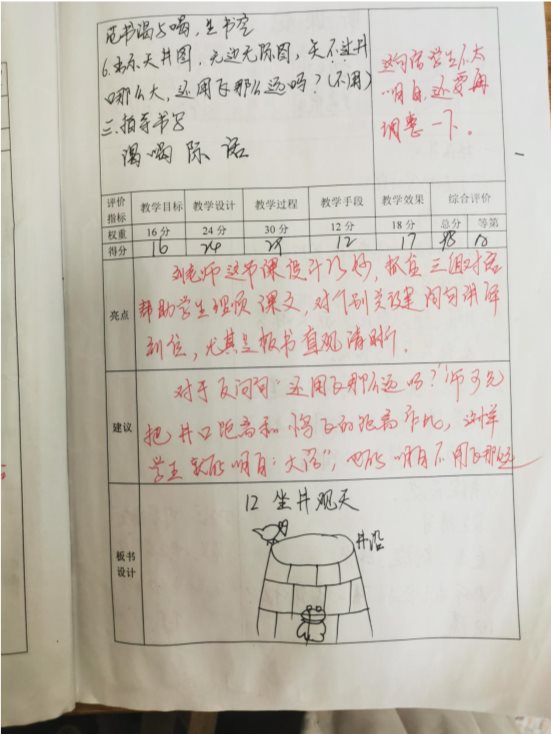 范书渴与喝，生书空
6.出示天井图，无边无际图，天不过井
口那么大，还用飞那么远吗？(不用)
三.指导书写
渴 喝 际 话
这句话学生不太
明白，还要再
调整一下。
评价指标 教学目标 教学设计 教学过程 教学手段 教学效果 综合评价
权重 16分 24分 30分 12分 18分 总分 等第
得分 16 24 29 12 17 98
亮点
刘老师这节课设计巧妙，抓住三组对话
帮助学生理顺课文，对个别关键问句讲解
到位，尤其是板书直观清晰。
建议
对于反问句：还用飞那么远吗？师可先
把井口距离和鸟飞的距离作比，这样
学生就能明白："大话"，也能明白不用飞那么远
板书设计
12 坐井观天
井沿